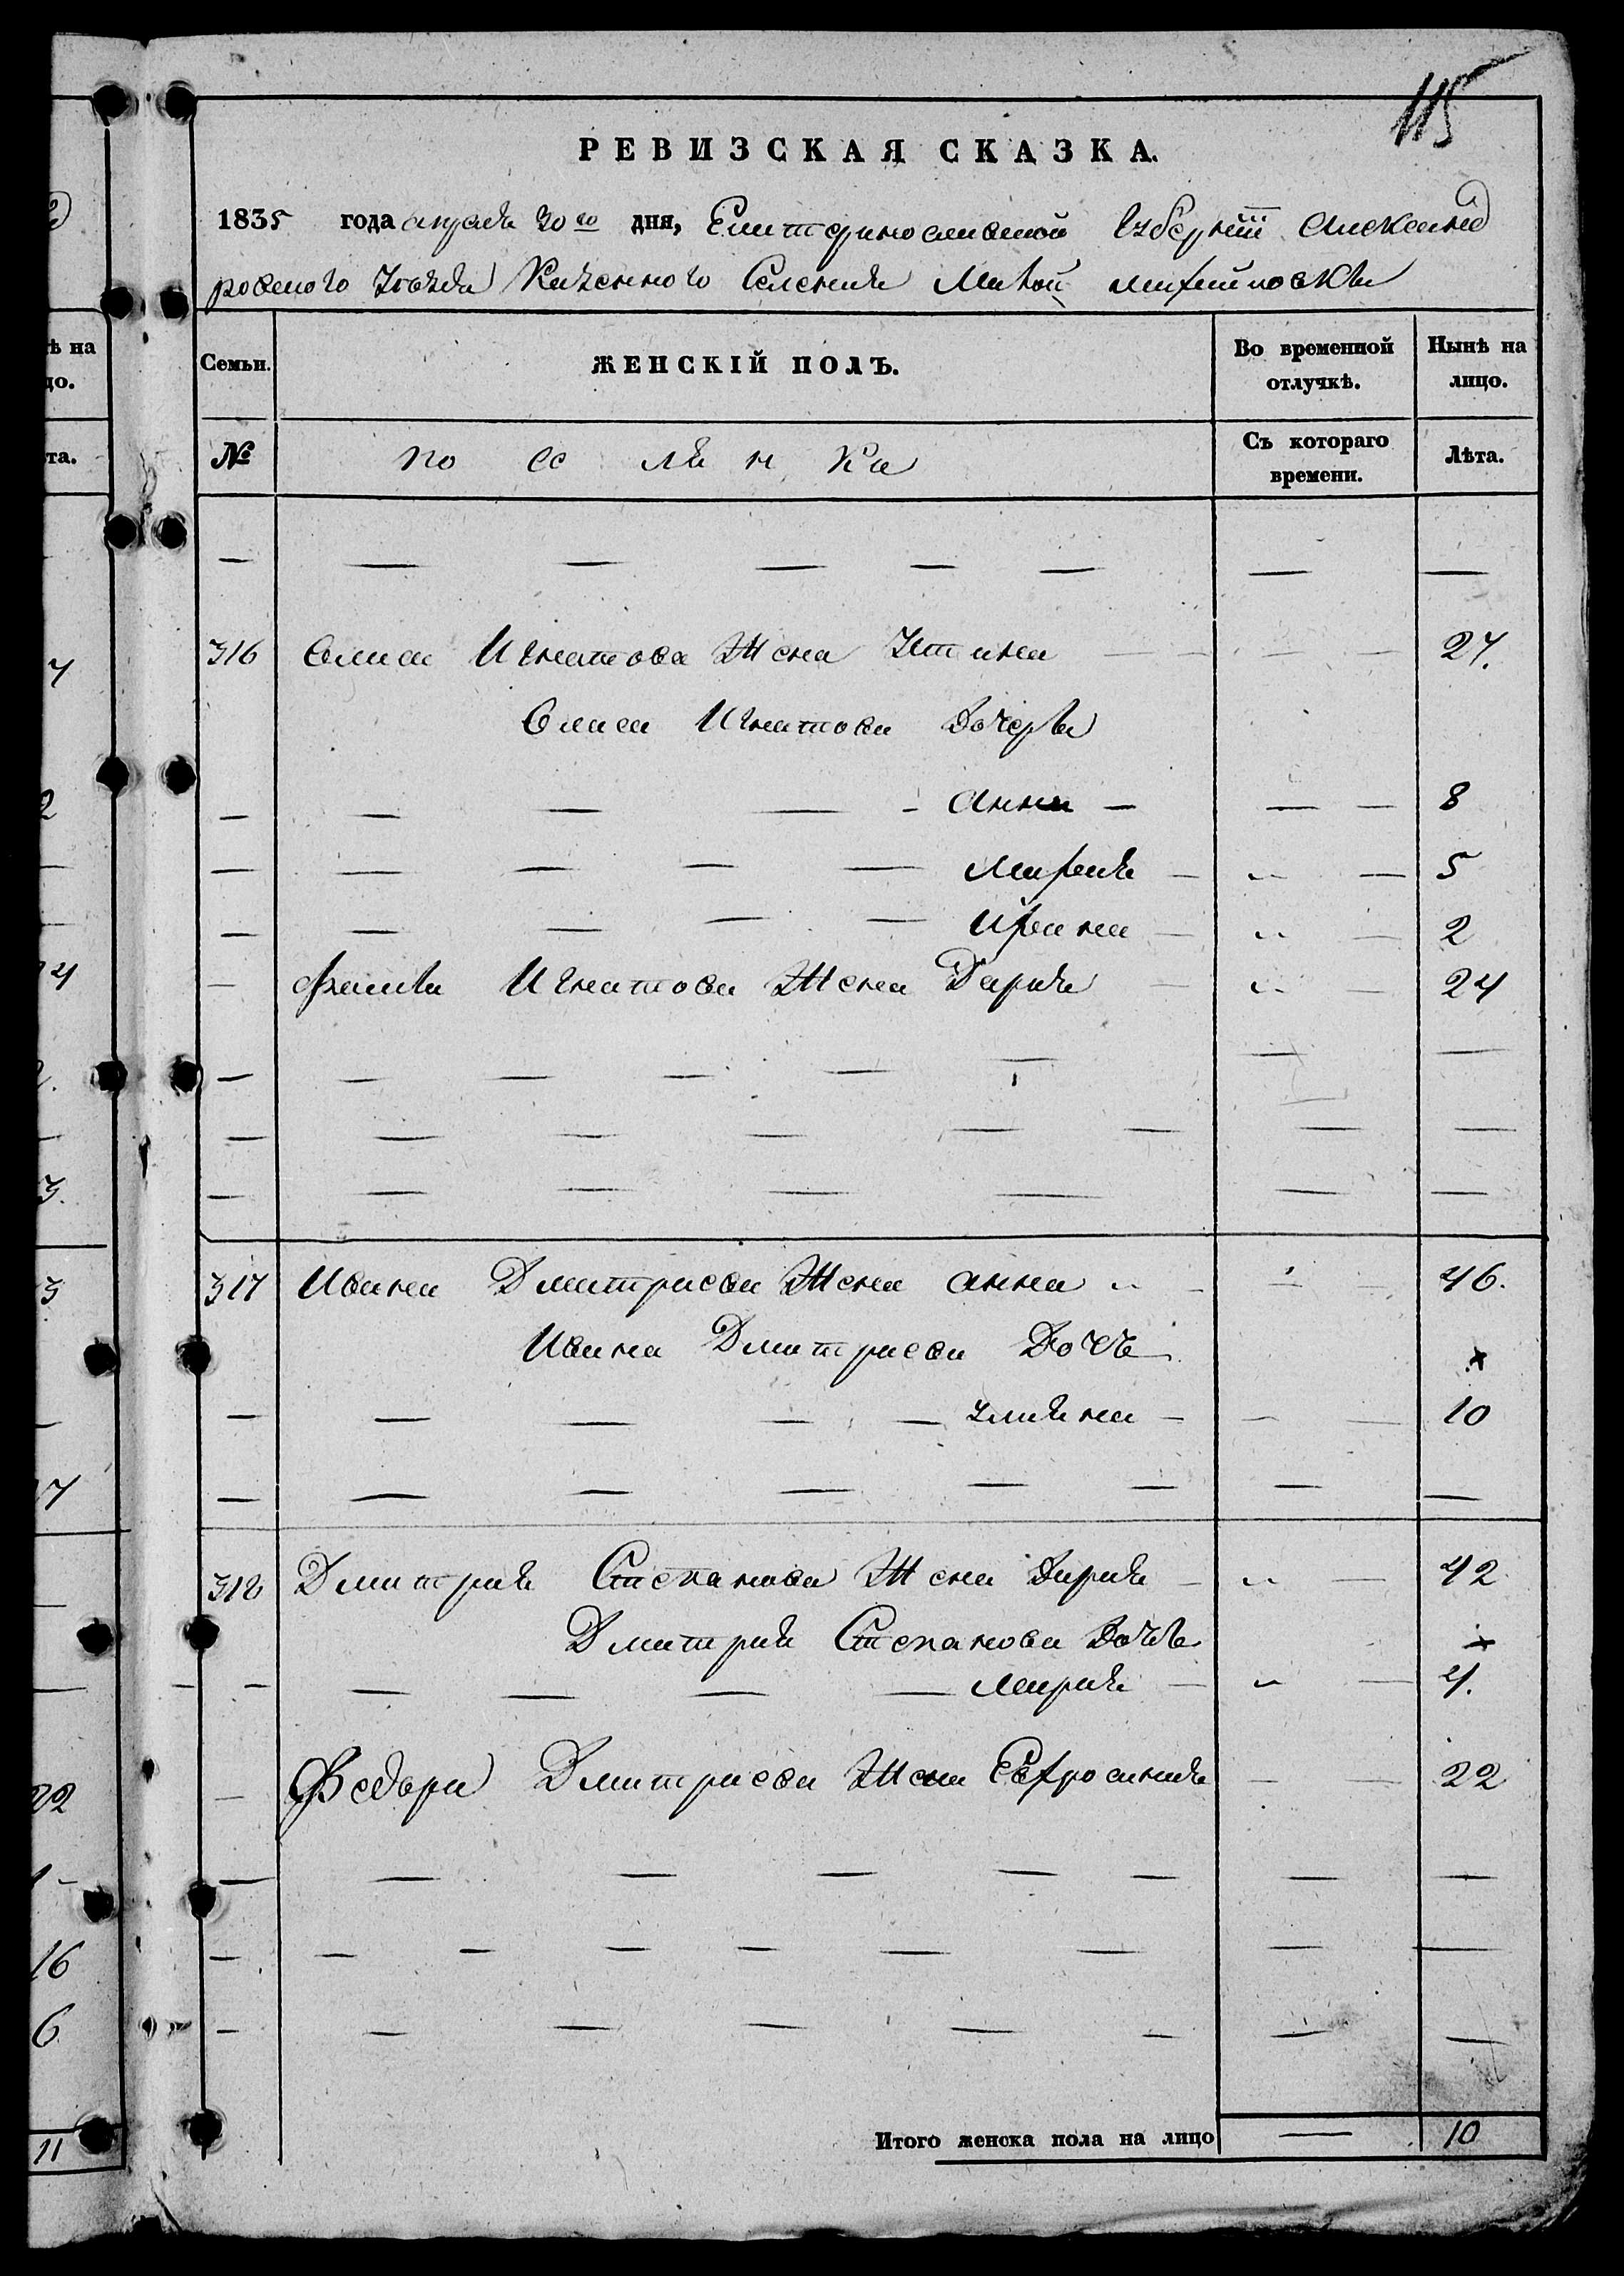 115
РЕВИЗСКАЯ СКАЗКА.
1835 года апреля 30го дня, Екатеринославской Губернiи Александ
ровского Уезда Казенного Селенiя Малой Михайловки
Семьи.
ЖЕНСКIЙ ПОЛЪ.
Во временной отлучкѣ.
Нынѣ на лицо.
№
поселянка
Съ котораго времени.
Лѣта.
316 Игнатова Жена Устина 27.
Игнатова Дочери
Анна 8
Мария 5
Ирина 2
Игнатова Жена Дария 24
317 Ивана Дмитриева Жена Анна 46.
Ивана Дмитриева Дочь х
Улияна 10
318 Дмитрия Степанова Жена Дария 42
Дмитрия Степанова Дочь х
Мария 4.
Федора Дмитриева Жена Ефросиния 22
Итого женска пола на лицо — 10
ѣ на
цо.
та.
7
2
24
3.
3
17
22
16
6
11